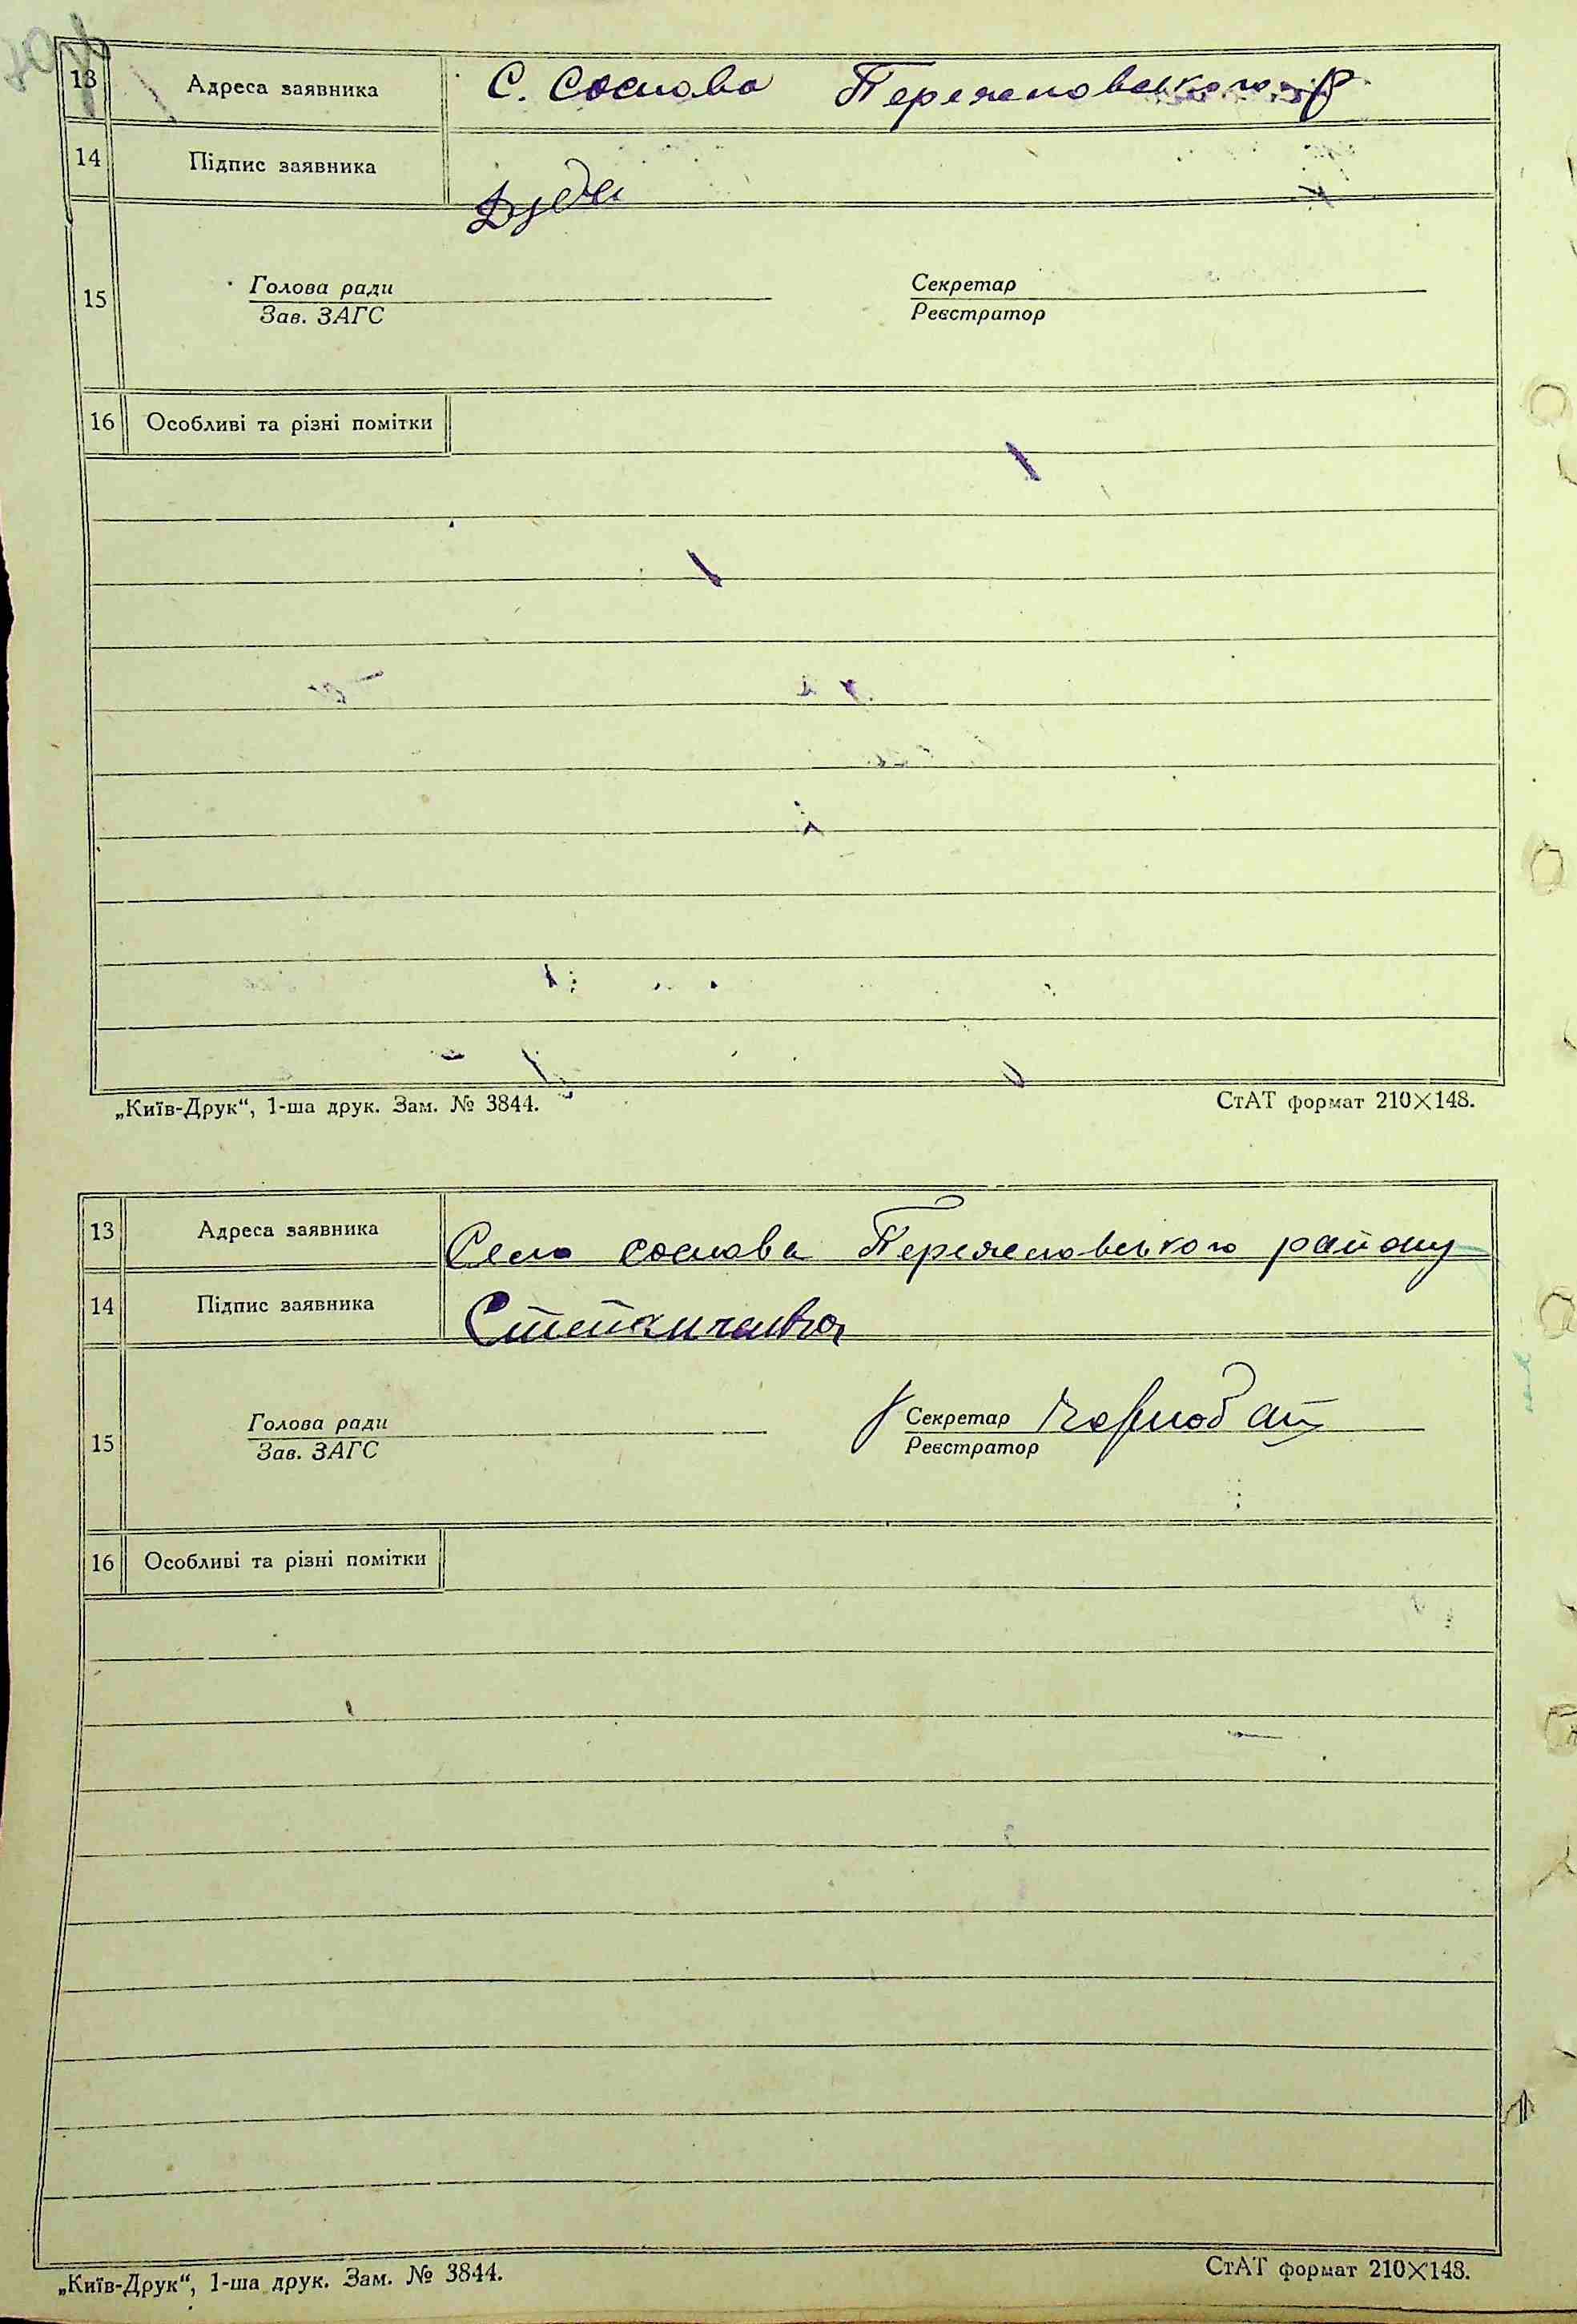 13 Адреса заявника С. Соснова Переяславського р.
14 Підпис заявника Дуда
15 Голова ради Секретар
Зав. ЗАГС Реєстратор
16 Особливі та різні помітки
„Київ-Друк“, 1-ша друк. Зам. № 3844. СтАТ формат 210×148.
13 Адреса заявника Село соснова Переяславського району
14 Підпис заявника Степанченко
15 Голова ради Секретар Чорнобай
Зав. ЗАГС Реєстратор
16 Особливі та різні помітки
„Київ-Друк“, 1-ша друк. Зам. № 3844. СтАТ формат 210×148.